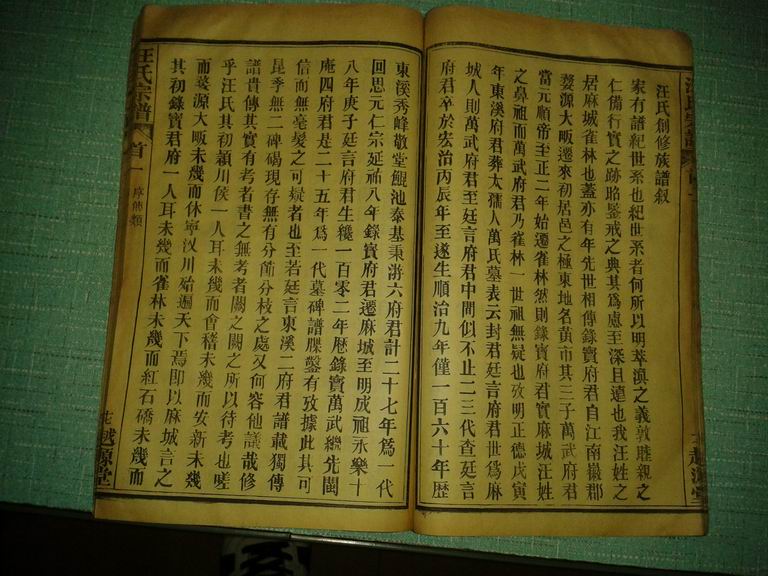 汪氏創修族譜敘
家有譜紀世系也紀世系者何所以明萃渙之義敦睦親之
仁備行實之跡昭鑒戒之典其爲慮至深且遠也我汪姓之
居麻城雀林也蓋亦有年先世相傳錄寶府君自江南徽郡
婺源大畈遷來初居邑之極東地名黄市其三子萬武府君
當元順帝至正二年始遷雀林然則錄寶府君實麻城汪姓
之鼻祖而萬武府君乃雀林一世祖無疑也攷明正德戊寅
年東溪府君葬太孺人萬氏墓表云封君廷言府君世爲麻
城人則萬武府君至廷言府君中間似不止二三代查廷言
府君卒於宏治丙辰年至遂生順治九年僅一百六十年歷
東溪秀峰敬堂鯤池泰基秉游六府君計二十七年爲一代
回思元仁宗延祐八年錄寶府君遷麻城至明成祖永樂十
八年庚子廷言府君生纔一百零二年歷錄寶萬武繼先閬
庵四府君是二十五年爲一代墓碑譜牒鑿有攷據此其可
信而無毫髮之可疑者也至若廷言東溪二府君譜載獨傳
昆季無二碑碣現存無有分節分枝之處又何容他議哉修
譜貴傳其實有考者書之無考者闕之闕之所以待考也嗟
乎汪氏其初潁川侯一人耳未幾而會稽未幾而安新未幾
而婺源大畈未幾而休寧汊川始遍天下焉即以麻城言之
其初錄寶君府一人耳未幾而雀林未幾而紅石礄未幾而
汪氏宗譜
首一
序傳類
越源堂